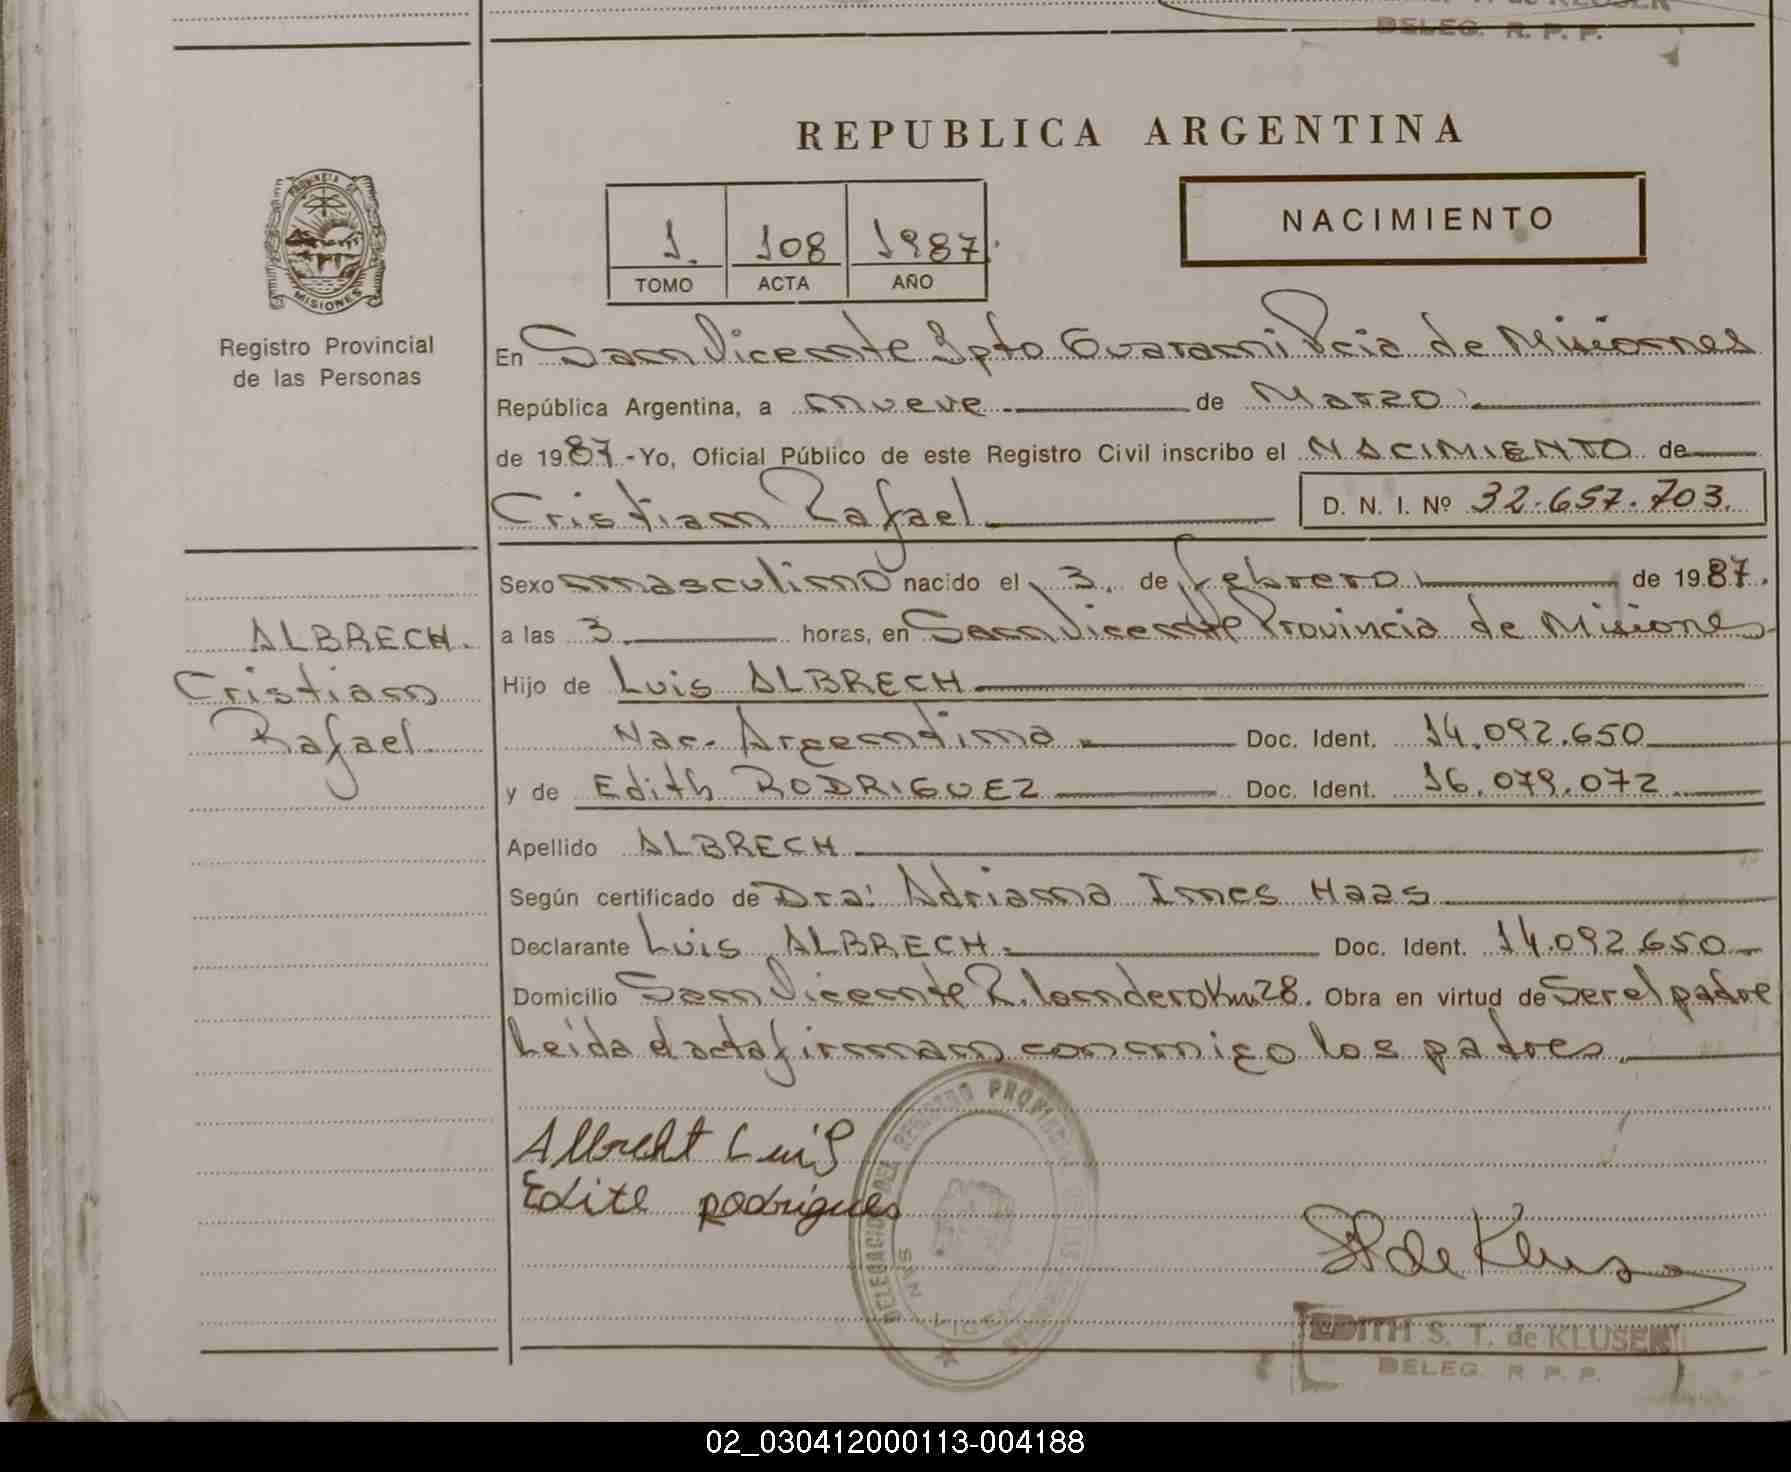 DELEG. R. P. P.
REPUBLICA ARGENTINA
PROVINCIA DE
MISIONES
Registro Provincial
de las Personas
1. 108 1987
TOMO ACTA AÑO
NACIMIENTO
En San Vicente Dpto Guarani Pcia de Misiones
República Argentina, a nueve de Marzo
de 1987 - Yo, Oficial Público de este Registro Civil inscribo el NACIMIENTO de
Cristian Rafael D. N. I. Nº 32.657.703.
Sexo masculino nacido el 3. de febrero de 1987.
a las 3 horas, en San Vicente Provincia de Misiones
ALBRECH.
Cristian
Rafael
Hijo de Luis ALBRECH
Nac. Argentina Doc. Ident. 14.092.650
y de Edith RODRIGUEZ Doc. Ident. 16.079.072
Apellido ALBRECH
Según certificado de Dra: Adriana Ines Haas
Declarante Luis ALBRECH. Doc. Ident. 14.092.650
Domicilio San Vicente R. landero Km 28. Obra en virtud de Ser el padre
Leida el acta firman conmigo los padres.
Albrecht Luis
Edite rodrigues
DELEGACION DEL REGISTRO PROVINCIAL
S. T. de Kluser
EDITH S. T. de KLUSER
DELEG. R. P. P.
02_030412000113-004188